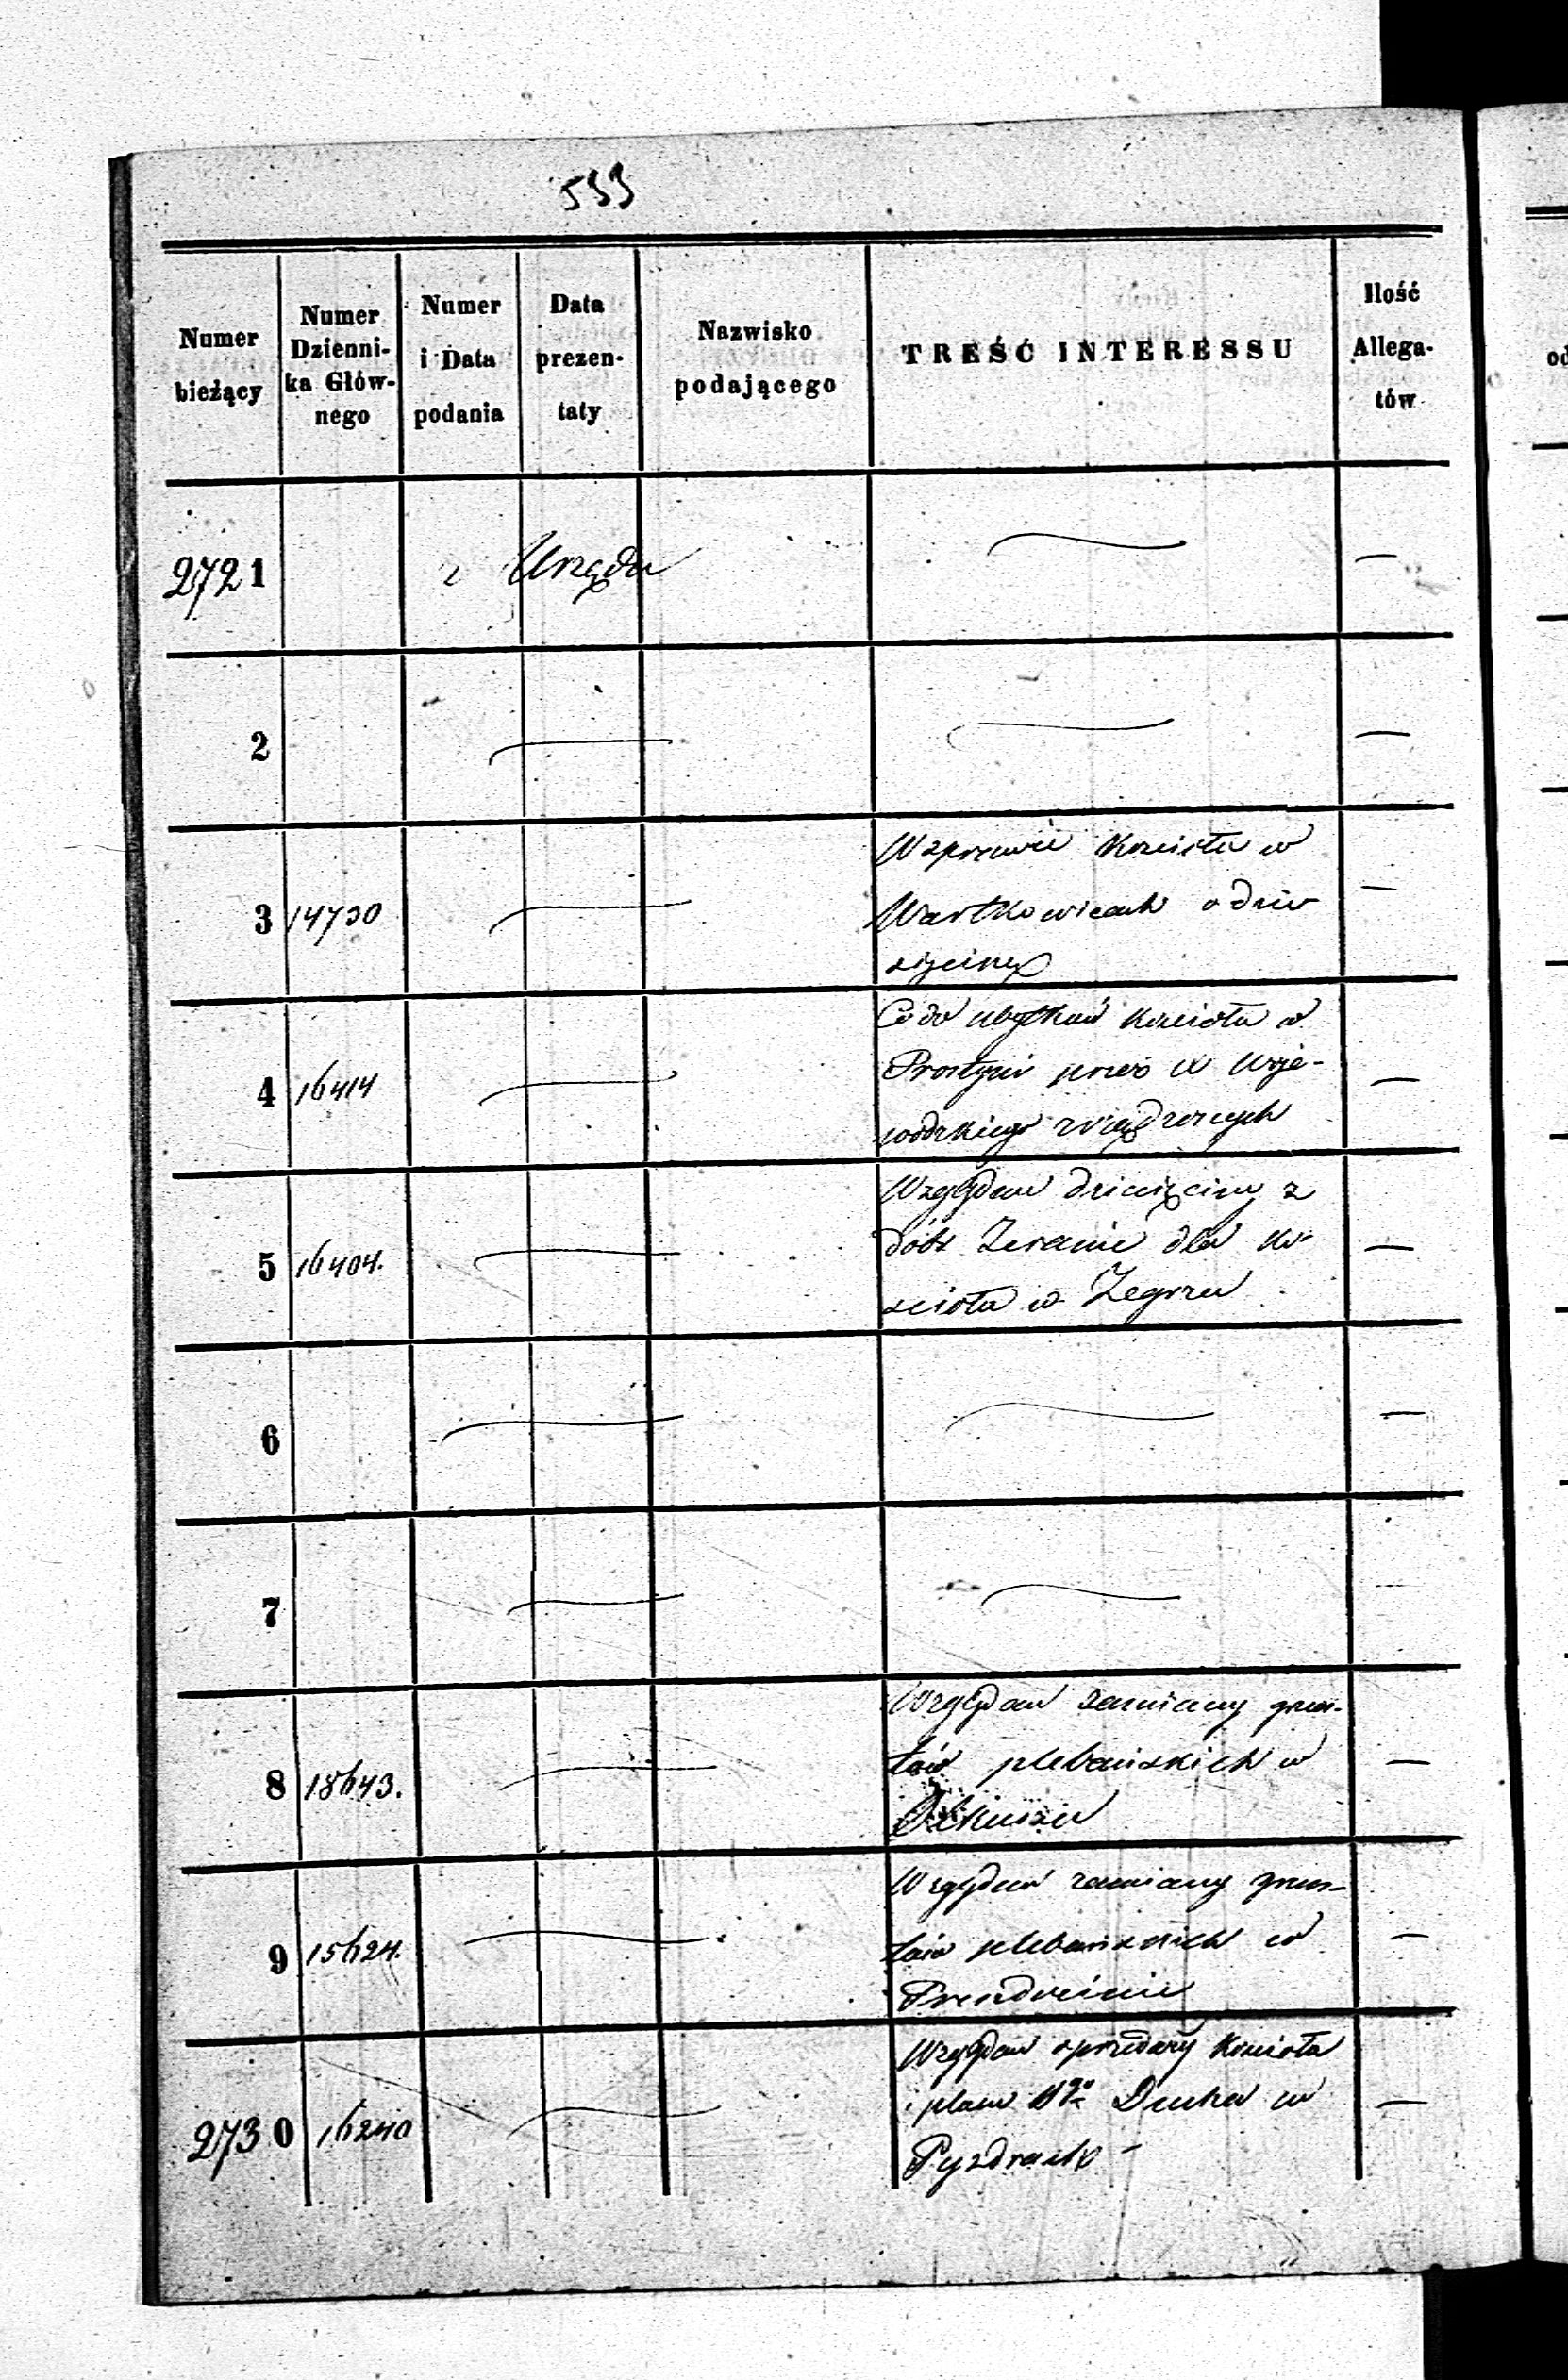 533
Numer bieżący
Numer Dzienni-
ka Głów-
nego
Numer i Data podania
Data prezen-
taty
Nazwisko podającego
TREŚĆ INTERESSU
Ilość Allega-
tów
2721 z Urzędu — —
2 — — —
3 14730 — W sprawie Kościoła w —
Wartkowicach o dzie
sięcinę
4 16414 — Co do ubytków Kościoła w —
Prostyni przez X Woje-
wodzkiego zrządzonych
5 16404. — Względem dziesięciny z —
dóbr Zeranie dla Ko
scioła w Zegrzu
6 — — —
7 — —
8 18643. — Względem zamiany grun- —
tów plebańskich w
Olkuszu
9 15624. — Względem zamiany grun- —
tów plebańskich w
2730 16240 — Względem sprzedaży Kościoła —
i placu Sgo Ducha w
Pyzdrach –